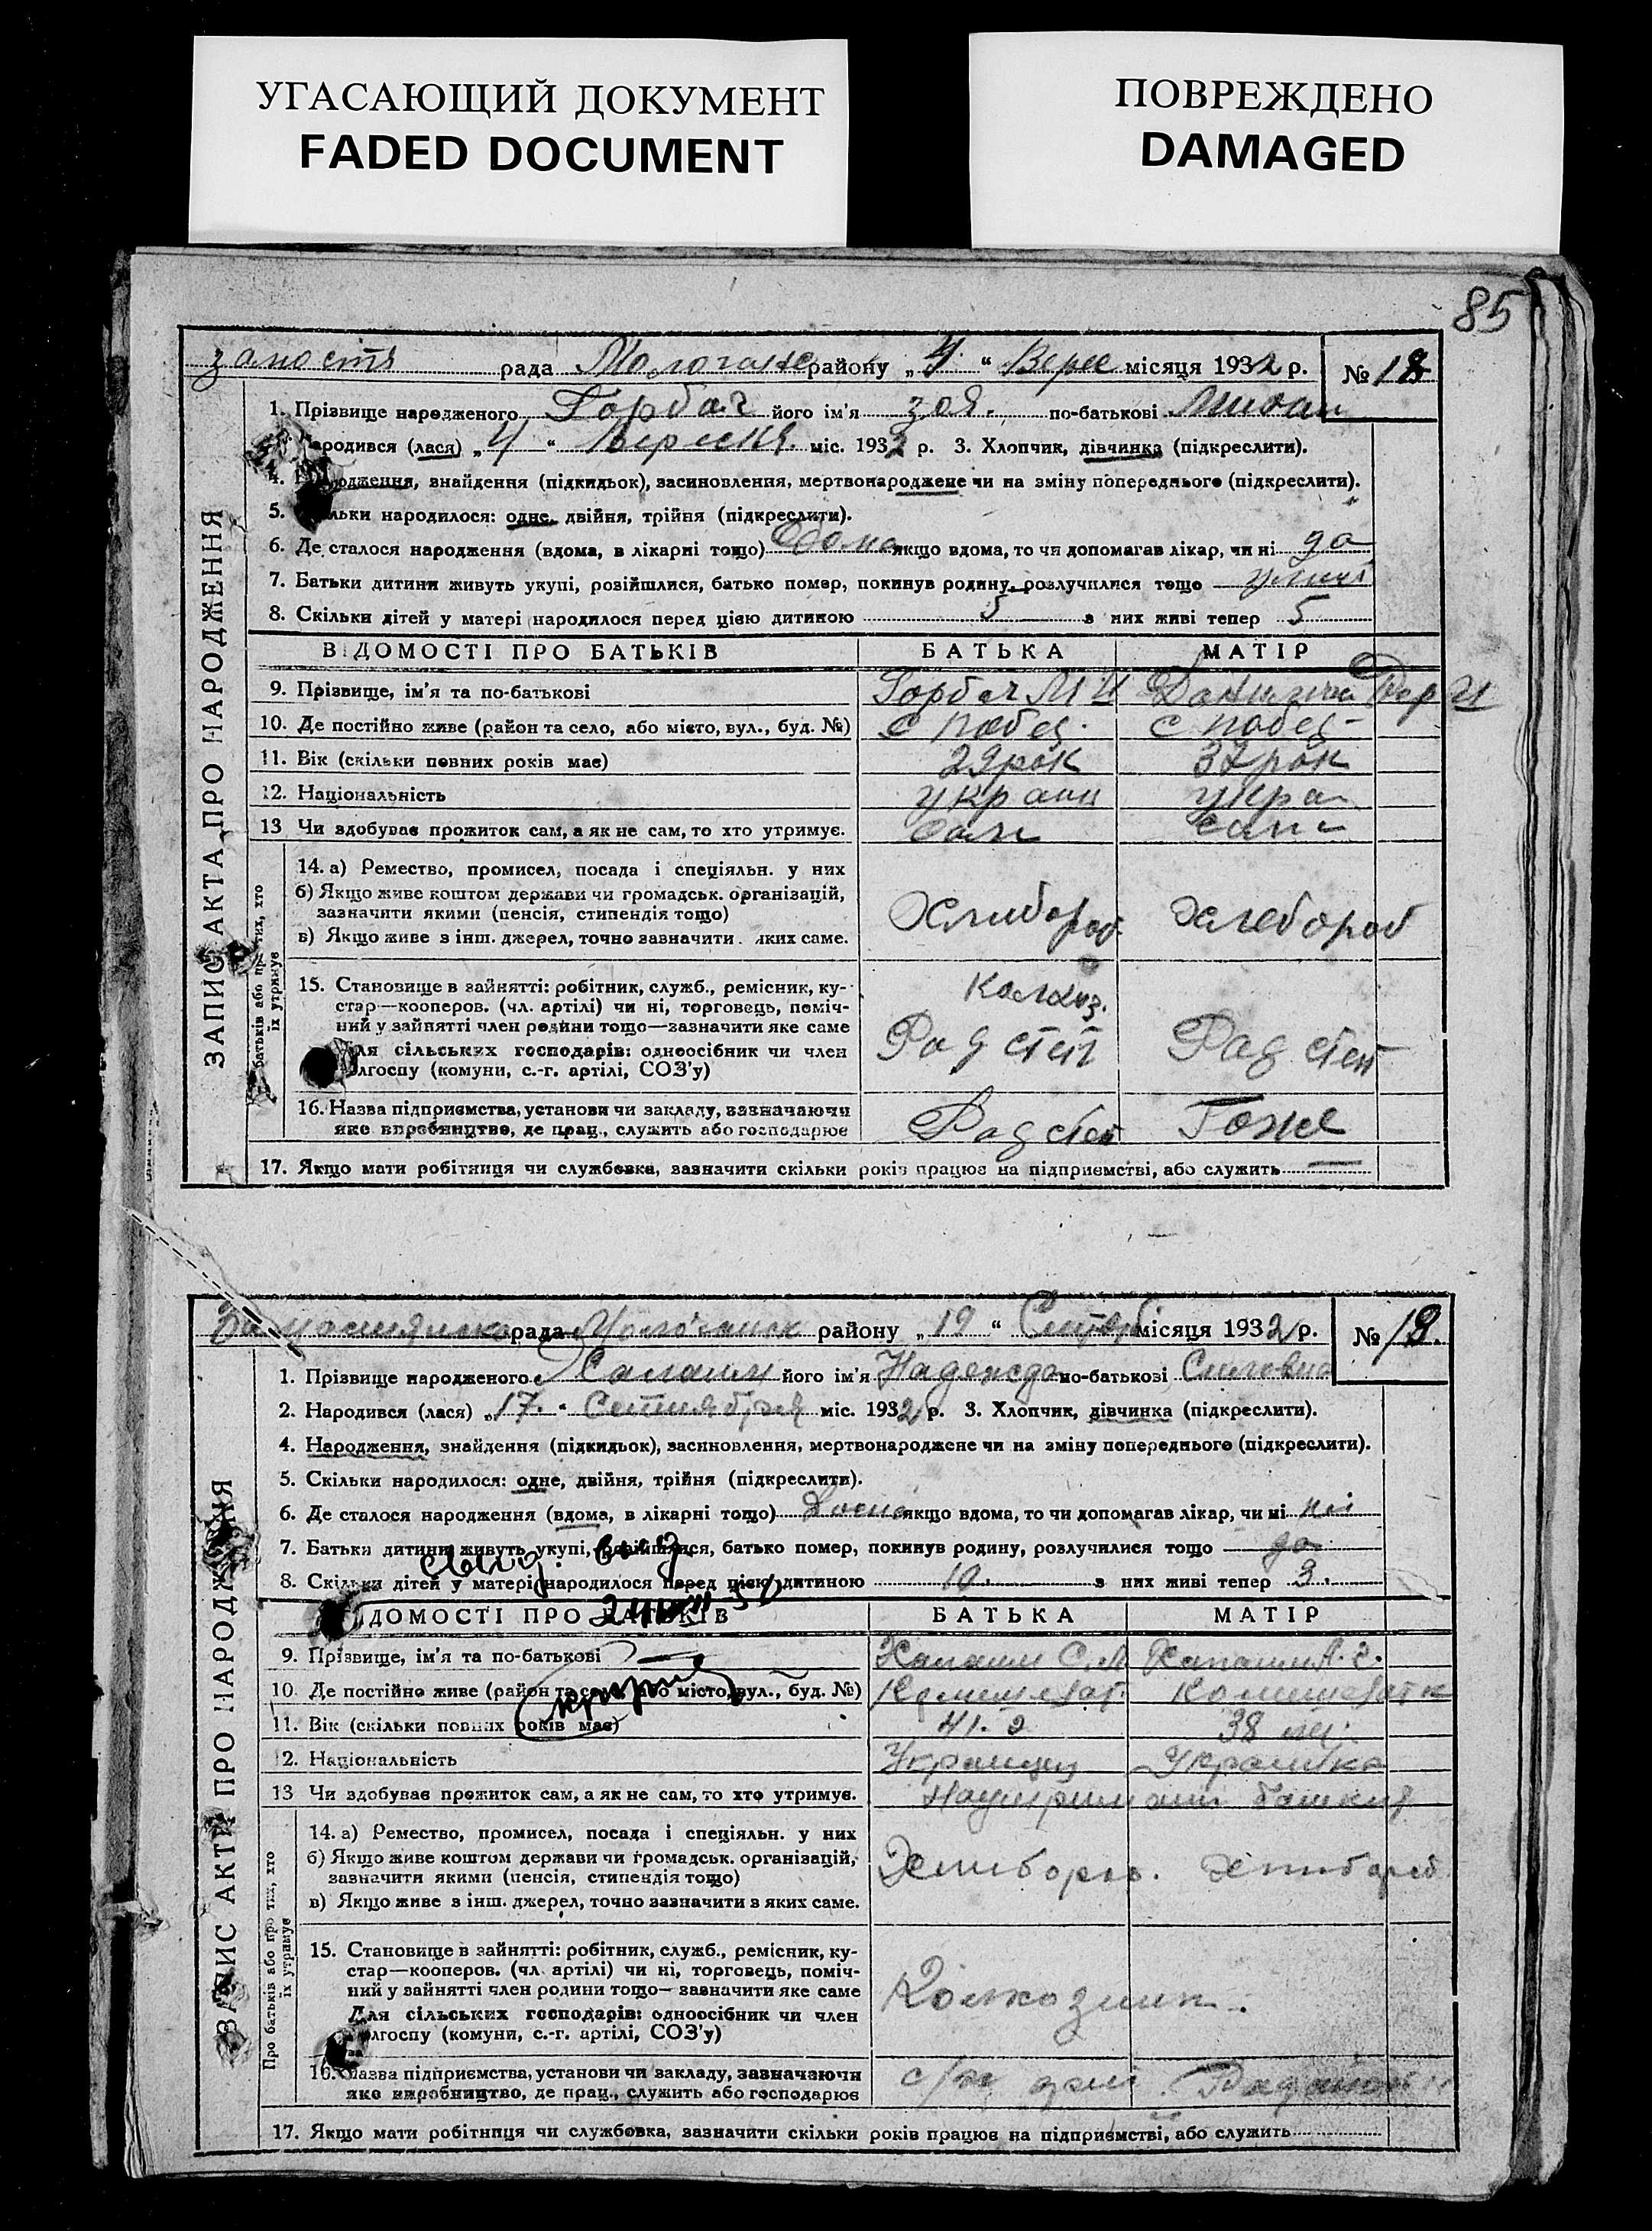 УГАСАЮЩИЙ ДОКУМЕНТ
FADED DOCUMENT
ПОВРЕЖДЕНО
DAMAGED
85
рада району „4“ Верес місяця 1932 р. № 18
ЗАПИС АКТА ПРО НАРОДЖЕННЯ
1. Прізвище народженого Горбач його ім'я Зоя. по-батькові
народився (лася) „4“ Вересня. міс. 1932 р. 3. Хлопчик, дівчинка (підкреслити).
4. Народження, знайдення (підкидьок), засиновлення, мертвонароджене чи на зміну попереднього (підкреслити).
5. Скільки народилося: одне, двійня, трійня (підкреслити).
6. Де сталося народження (вдома, в лікарні тощо) Дома якщо вдома, то чи допомагав лікар, чи ні да
7. Батьки дитини живуть укупі, розійшлися, батько помер, покинув родину, розлучилися тощо
8. Скільки дітей у матері народилося перед цією дитиною 5 з них живі тепер 5
ВІДОМОСТІ ПРО БАТЬКІВ БАТЬКА МАТІР
9. Прізвище, ім'я та по-батькові Горбач М И
10. Де постійно живе (район та село, або місто, вул., буд. №) с побед. с побед-
11. Вік (скільки повних років має) 29 рок 37 рок
12. Національність украин укра
13 Чи здобуває прожиток сам, а як не сам, то хто утримує. сам сам
батьків або про тих, хто їх утримує
14. а) Ремество, промисел, посада і спеціяльн. у них
б) Якщо живе коштом держави чи громадськ. організацій,
зазначити якими (пенсія, стипендія тощо)
в) Якщо живе з інш. джерел, точно зазначити яких саме.
Хлибороб Хлебороб
15. Становище в зайнятті: робітник, служб., ремісник, ку-
стар—кооперов. (чл. артілі) чи ні, торговець, поміч-
ний у зайнятті член родини тощо—зазначити яке саме
Для сільських господарів: одноосібник чи член
колгоспу (комуни, с.-г. артілі, СОЗ'у)
Колхоз.
Рад степ Рад степ
16. Назва підприємства, установи чи закладу, зазначаючи
яке виробництво, де прац., служить або господарює
Рад степ Тоже
17. Якщо мати робітниця чи службовка, зазначити скільки років працює на підприємстві, або служить —
рада району „19“ місяця 1932 р. № 19.
ЗАПИС АКТА ПРО НАРОДЖЕННЯ
1. Прізвище народженого його ім'я Надежда по-батькові
2. Народився (лася) „17.“ Сентября міс. 1932 р. 3. Хлопчик, дівчинка (підкреслити).
4. Народження, знайдення (підкидьок), засиновлення, мертвонароджене чи на зміну попереднього (підкреслити).
5. Скільки народилося: одне, двійня, трійня (підкреслити).
6. Де сталося народження (вдома, в лікарні тощо) Дома якщо вдома, то чи допомагав лікар, чи ні ні
7. Батьки дитини живуть укупі, розійшлися, батько помер, покинув родину, розлучилися тощо да
8. Скільки дітей у матері народилося перед цією дитиною 10. з них живі тепер 3.
ВІДОМОСТІ ПРО БАТЬКІВ БАТЬКА МАТІР
9. Прізвище, ім'я та по-батькові
10. Де постійно живе (район та село, або місто, вул., буд. №)
11. Вік (скільки повних років має) 41. 38
12. Національність Українец Українка
13 Чи здобуває прожиток сам, а як не сам, то хто утримує.
Про батьків або про тих, хто їх утримує
14. а) Ремество, промисел, посада і спеціяльн. у них
б) Якщо живе коштом держави чи громадськ. організацій,
зазначити якими (пенсія, стипендія тощо)
в) Якщо живе з інш. джерел, точно зазначити з яких саме.
Хлибороб. Хлибороб
15. Становище в зайнятті: робітник, служб., ремісник, ку-
стар—кооперов. (чл. артілі) чи ні, торговець, поміч-
ний у зайнятті член родини тощо—зазначити яке саме
Для сільських господарів: одноосібник чи член
колгоспу (комуни, с.-г. артілі, СОЗ'у)
Колхозник.
16. Назва підприємства, установи чи закладу, зазначаючи
яке виробництво, де прац., служить або господарює
17. Якщо мати робітниця чи службовка, зазначити скільки років працює на підприємстві, або служить